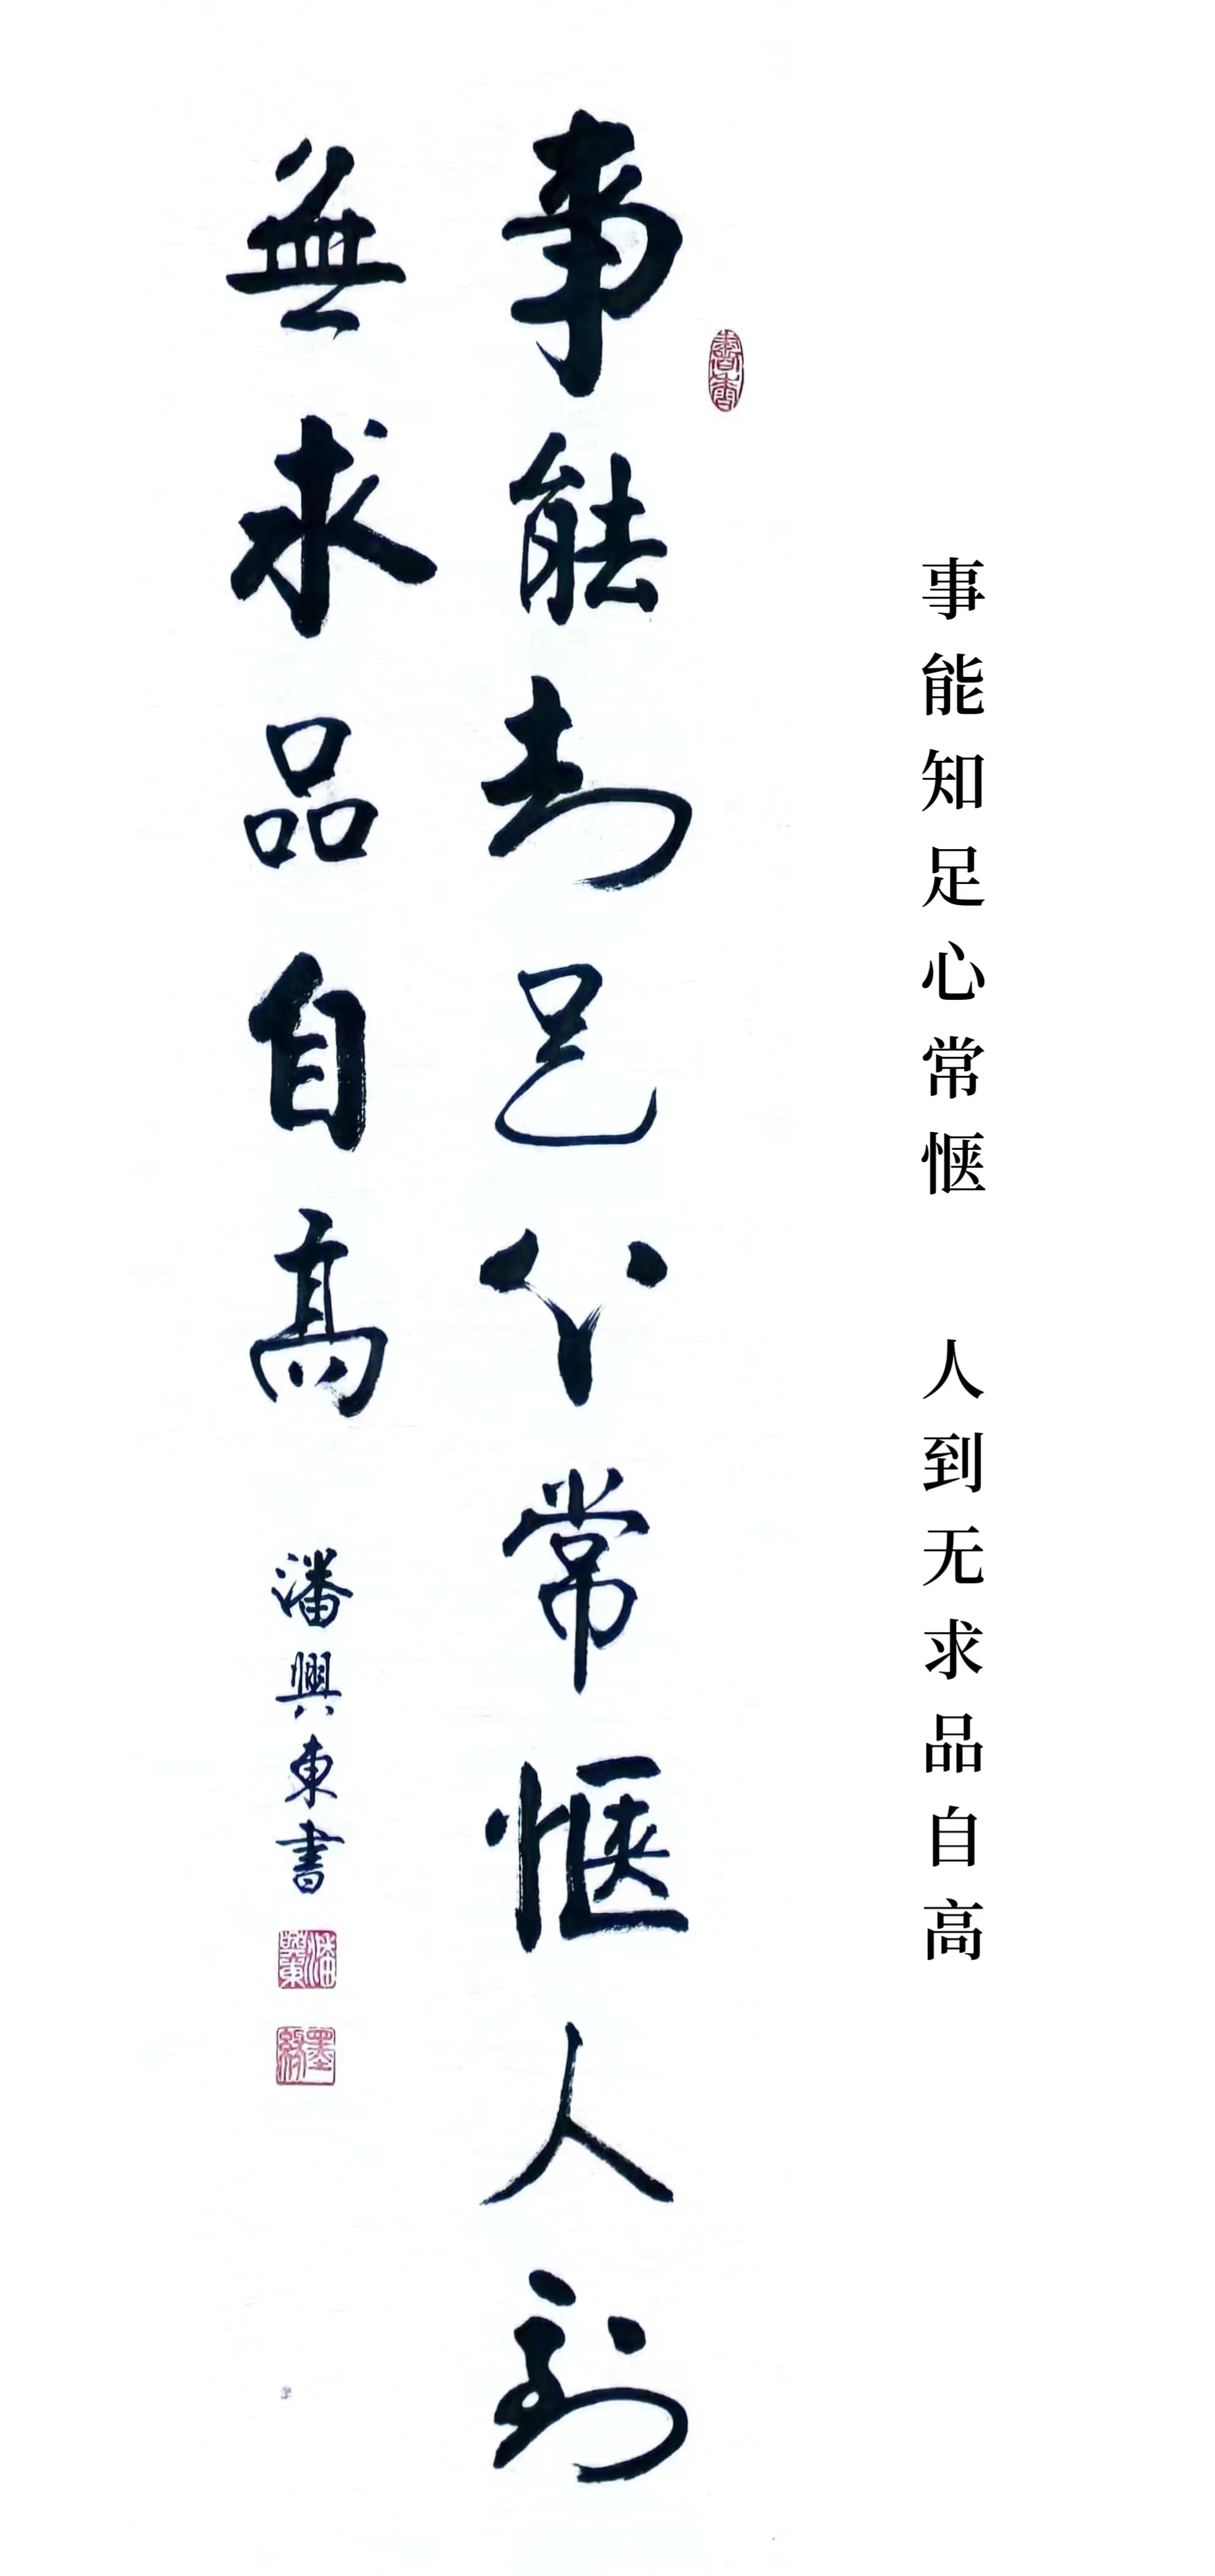 事能知足心常惬 人到无求品自高
書香
事能知足心常惬人到
無求品自高 潘興東書
潘興東
墨緣